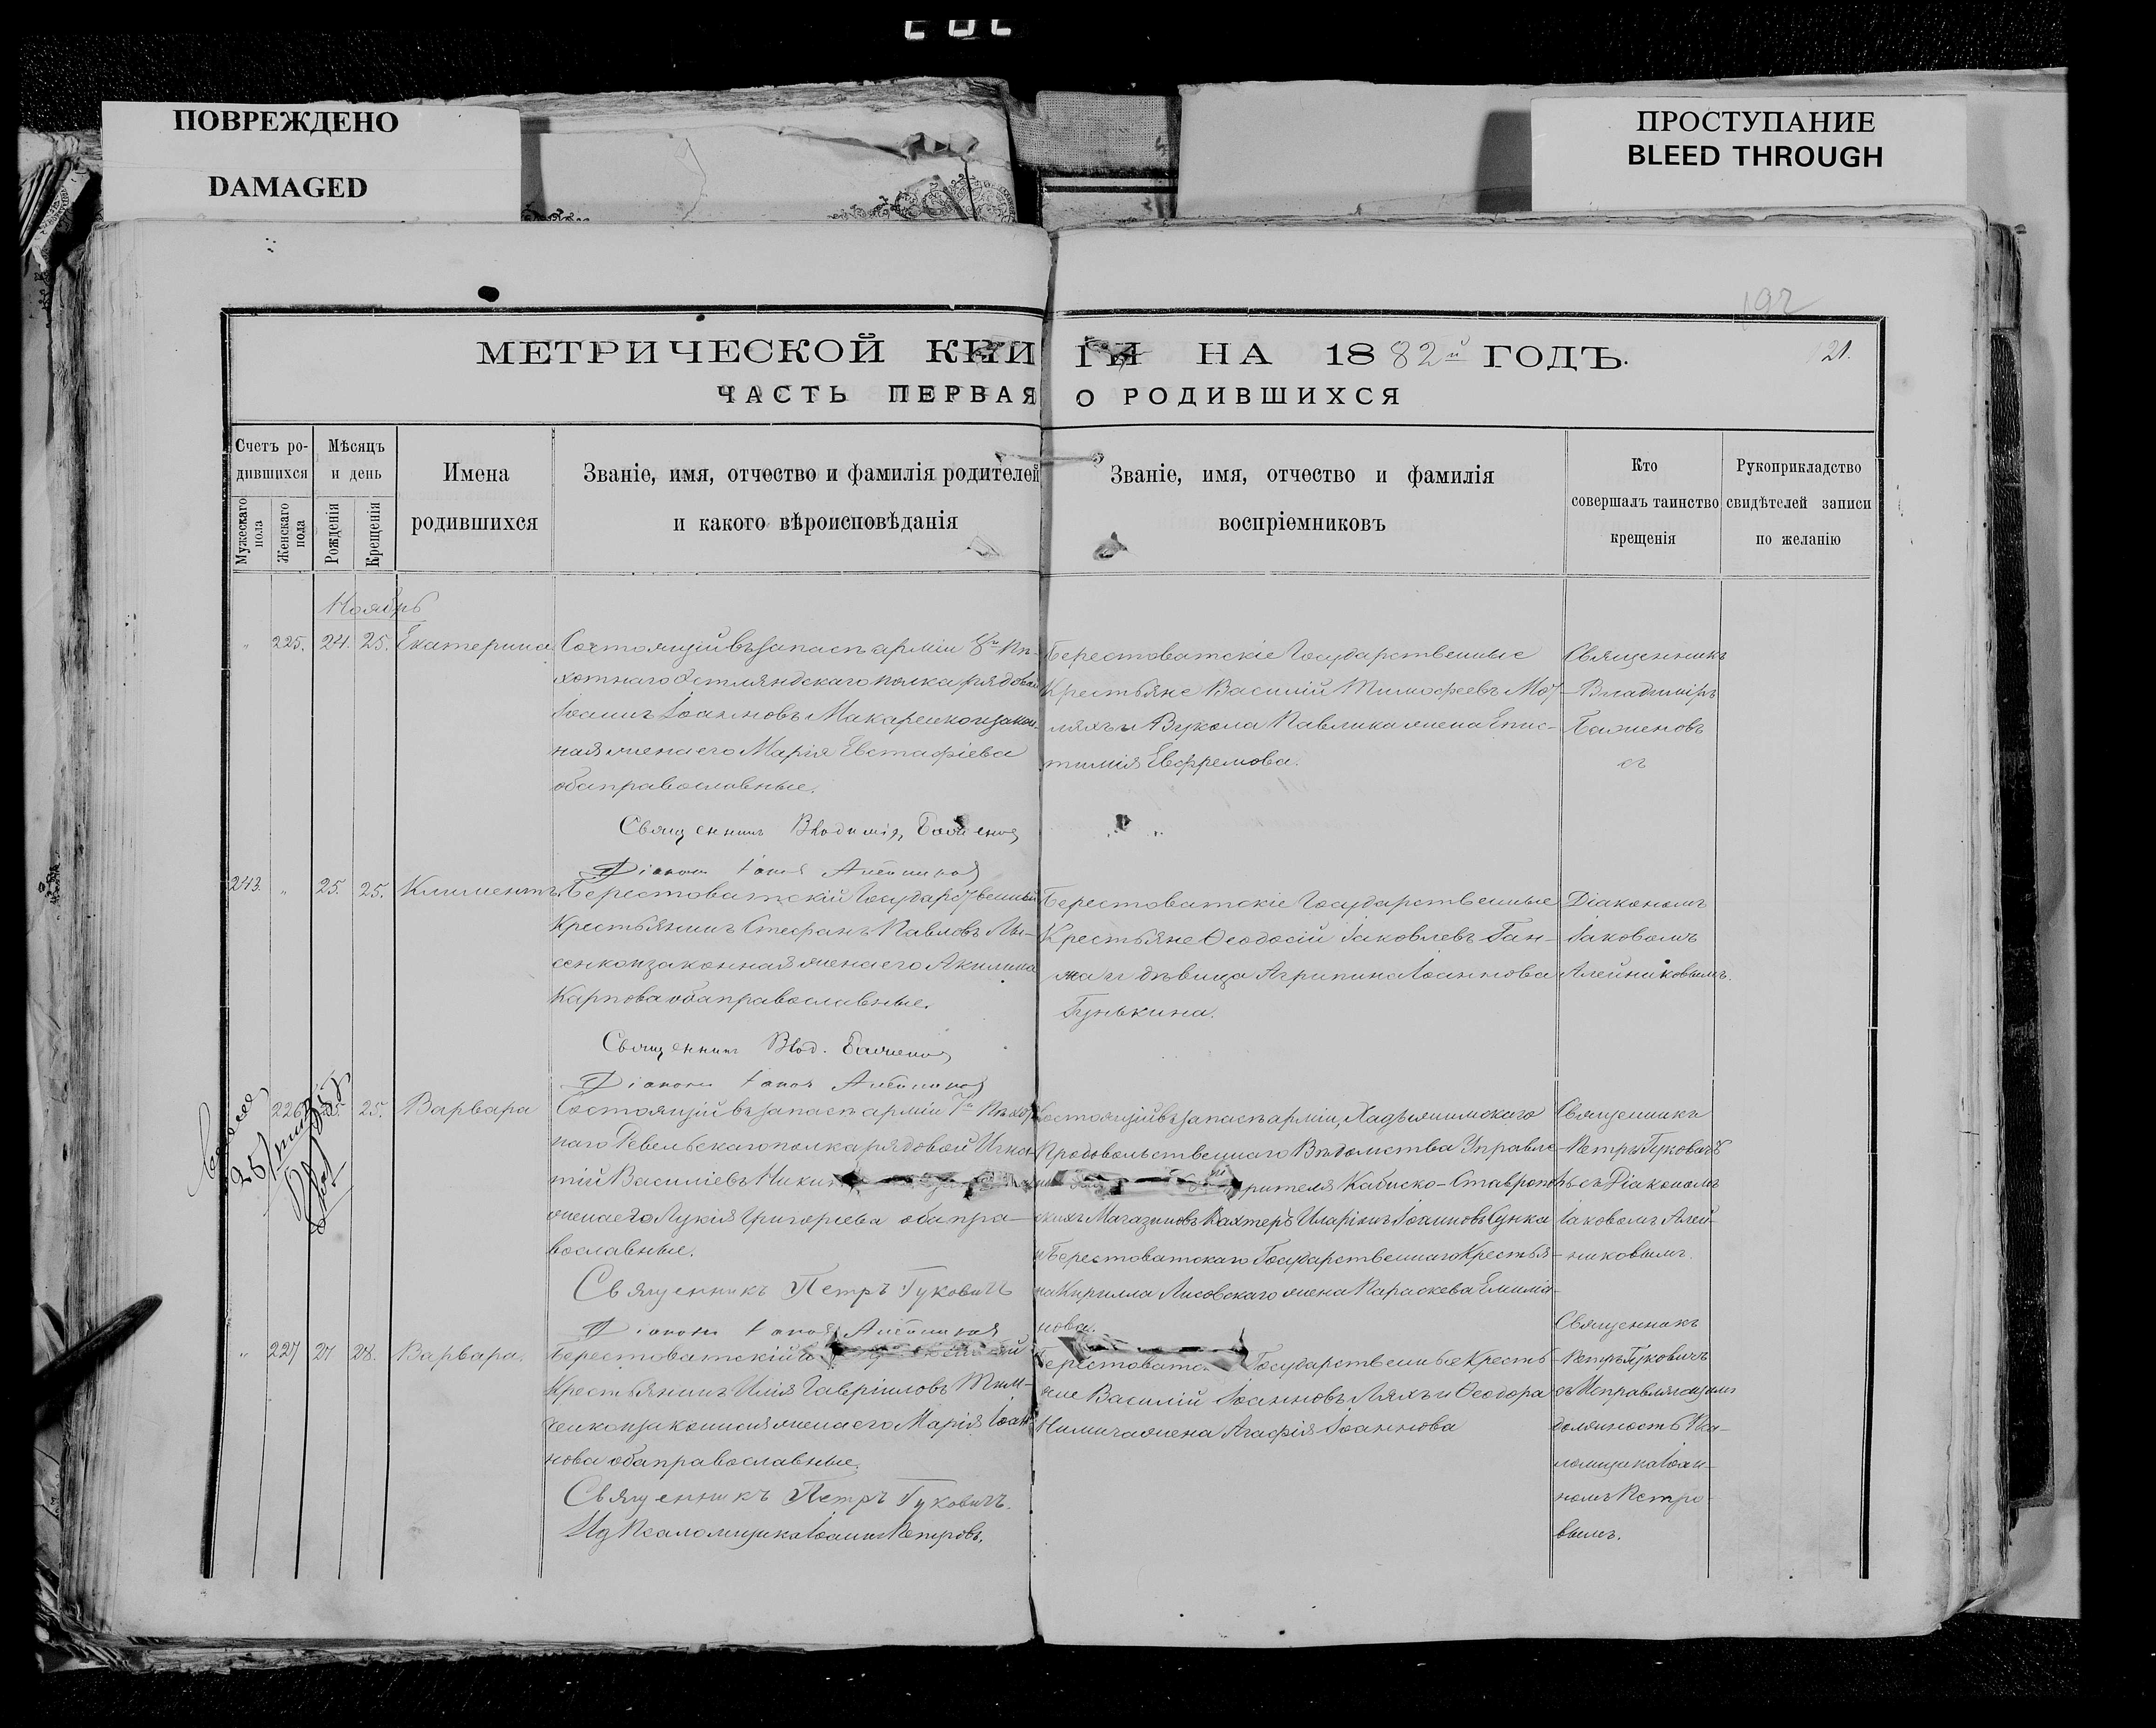 ПОВРЕЖДЕНО
DAMAGED
ПРОСТУПАНИЕ
BLEED THROUGH
192
МЕТРИЧЕСКОЙ КНИГИ НА 1882й ГОДЪ.
121.
ЧАСТЬ ПЕРВАЯ О РОДИВШИХСЯ
Счетъ ро-
дившихся
Мужескаго пола
Женскаго пола
Мѣсяцъ
и день
Рожденія
Крещенія
Имена
родившихся
Званіе, имя, отчество и фамилія родителей
и какого вѣроисповѣданія
Званіе, имя, отчество и фамилія
воспріемниковъ
Кто
совершалъ таинство
крещенія
Рукоприкладство
свидѣтелей записи
по желанію
Ноябрь
" 225. 24. 25. Екатерина
Состоящій въ запасѣ арміи 8го Пѣ-
хотнаго Эстляндскаго полка рядовой
Іоаннъ Іоанновъ Макаренко и закон-
ная жена его Марія Евстафіева
оба православные.
Священникъ Владиміръ Баженовъ
Діаконъ Іаковъ Алейниковъ
Берестоватскіе Государственные
Крестьяне Василій Тимофеевъ Мо-
ляхъ и Вукола Павлика жена Епис-
тимія Евфремова.
Священникъ
Владиміръ
Баженовъ
съ
243. " 25. 25. Климентъ
Берестоватскій Государственный
Крестьянинъ Стефанъ Павловъ Лы-
сенко и законная жена его Акилина
Карпова оба православные.
Священникъ Влад. Баженовъ
Діаконъ Іаковъ Алейниковъ
Берестоватскіе Государственные
Крестьяне Ѳеодосій Іаковлевъ Ган-
жа и дѣвица Агрипина Іоаннова
Гунькина.
Діакономъ
Іаковомъ
Алейниковымъ.
" 226. 25. 25. Варвара
Состоящій въ запасѣ арміи 7го Пѣхот-
наго Ревельскаго полка рядовой Игна-
тій Василіевъ Ники
жена его Лукія Григоріева оба пра-
вославные.
Священникъ Петръ Гуковичъ
Діаконъ Іаковъ Алейниковъ
Состоящій въ запасѣ арміи,
Продовольственнаго Вѣдомства Управле-
рителя Кавказско-Ставрополь-
скихъ Магазиновъ Вахтеръ Иларіонъ Іоанновъ Сунка
и Берестоватскаго Государственнаго Крестья-
на Кирилла Лисовскаго жена Параскева Емилиа-
нова.
Священникъ
Петръ Гуковичъ
съ Діакономъ
Іаковомъ Алей-
никовымъ.
" 227 27 28. Варвара.
Берестоватскій
Крестьянинъ Илія Гавріиловъ Тим-
ченко и законная жена его Марія Іоан-
нова оба православные.
Священникъ Петръ Гуковичъ.
Ид Псаломщика Іоаннъ Петровъ.
Берестоватс Государственные Кресть-
яне Василій Іоанновъ Ляхъ и Ѳеодора
жена Агафія Іоаннова
Священникъ
Петръ Гуковичъ
съ Исправляющимъ
должность Пса-
ломщика Іоан-
номъ Петро-
вымъ.